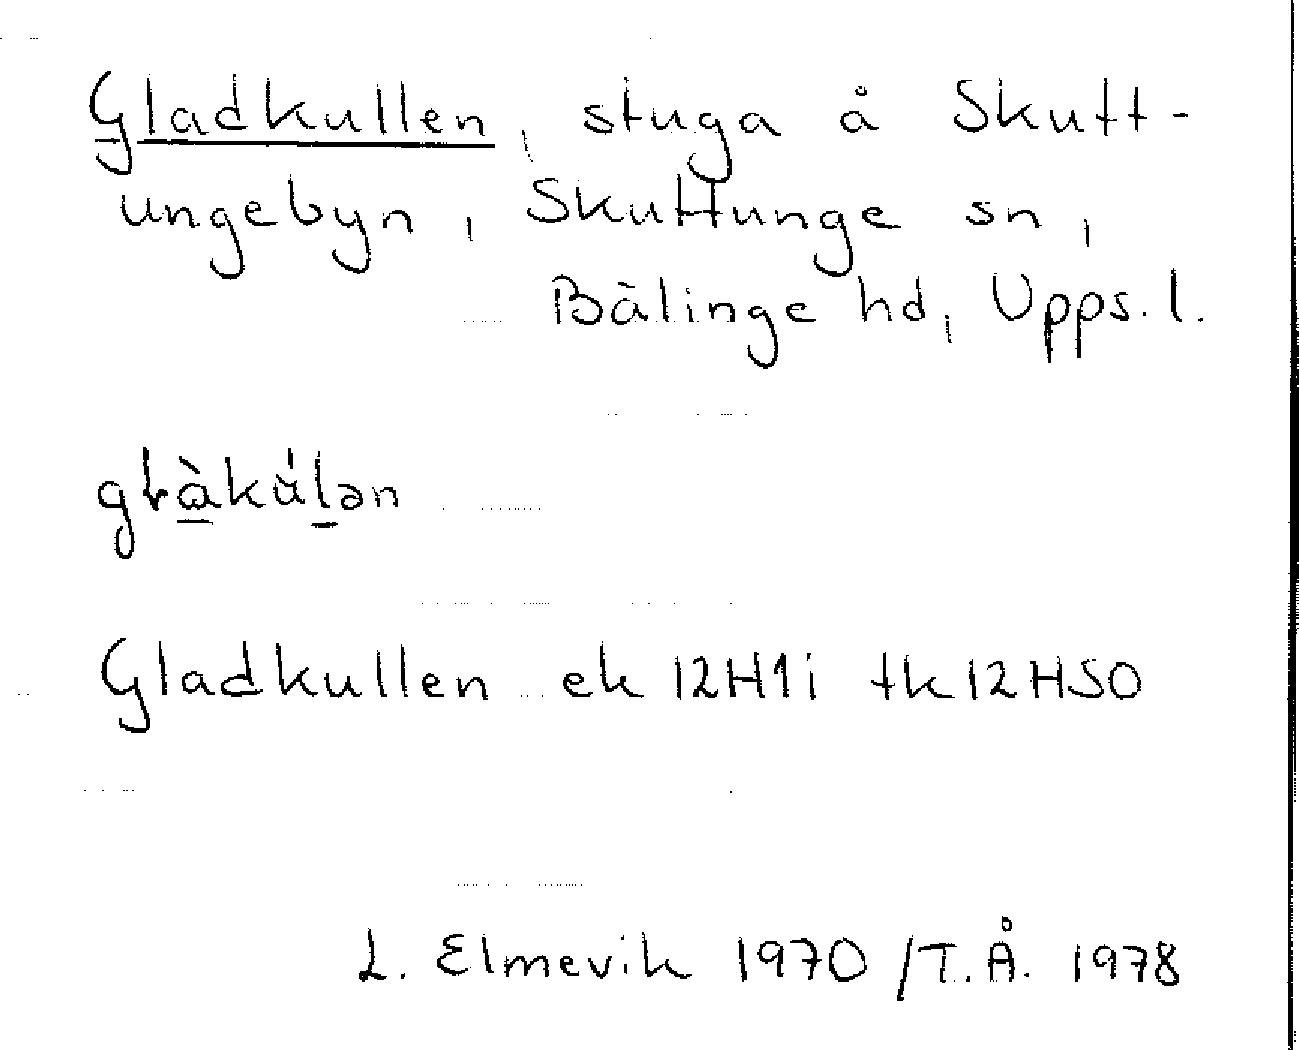 Gladkullen, stuga å Skutt-
ungebyn, Skuttunge sn,
Bälinge hd, Upps. l.
Gladkullen ek 12H1i tk12HSO
L. Elmevik 1970 /T.Å. 1978